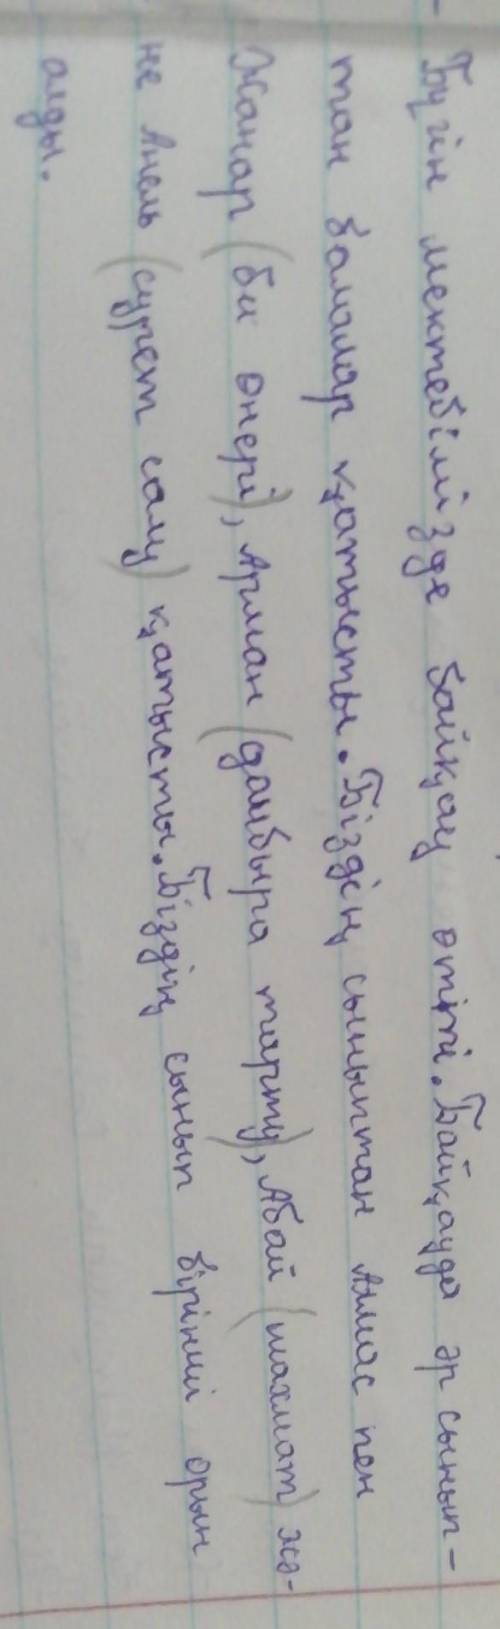 Бүгін мектебімізде байқау өтті. Байқауда әр сынып-
тан балалар қатысты. Біздің сыныптан Алмас пен
Жанар (би өнері), Арман (домбыра тарту), Абай (шахмат) жә-
не Анель (сурет салу) қатысты. Біздің сынып бірінші орын
алды.